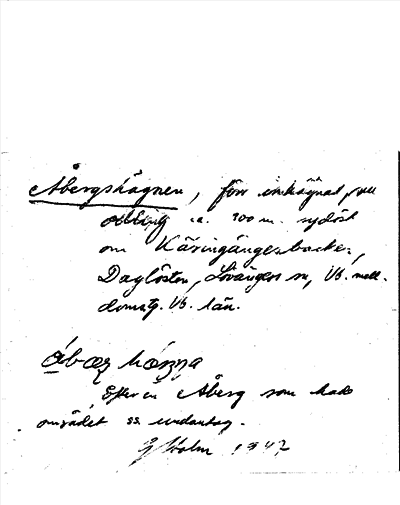 Åbergshägnen, förr inhägnat, nu
odling c:a. 700 m. sydöst
om Käringängesbacken,
Daglösten, Lövångers sn, Vb. mell.
domsg. Vb. län.
åbær hæŋna
Efter en Åberg som hade
området ss. undantag.
G Holm 1947